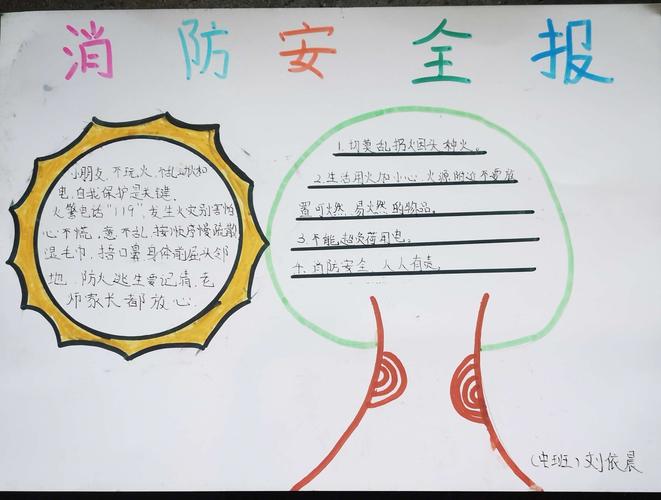 消防安全报
小朋友,不玩火,不乱动火和
电,自我保护是关键,
火警电话"119",发生火灾别害怕
心不慌,意不乱,按顺序慢疏散
湿毛巾,捂口鼻身体前屈头邻
地,防火逃生要记清,老
师家长都放心.
1.切莫乱扔烟头、种火。
2.生活用火加小心,火源附近不要放
置可燃、易燃的物品。
3.不能超负荷用电。
4.消防安全,人人有责。
班)刘依晨